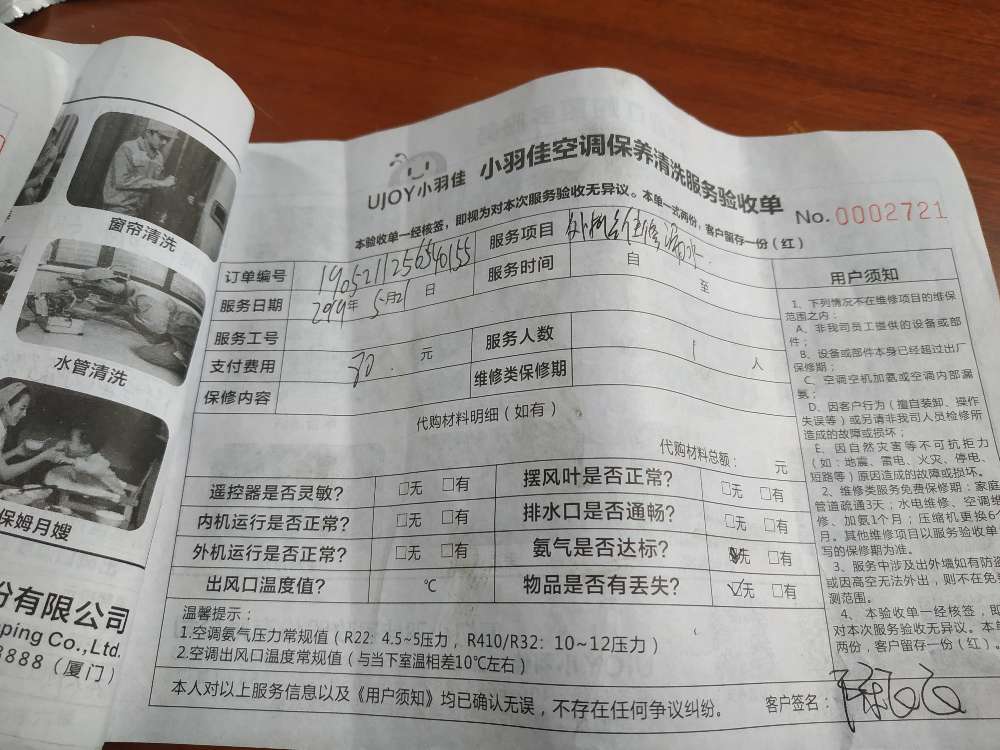 窗帘清洗
水管清洗
保姆月嫂
份有限公司
ping Co.,Ltd.
8888（厦门）
UJOY小羽佳 小羽佳空调保养清洗服务验收单
No. 0002721
本验收单一经核签，即视为对本次服务验收无异议。本单一式两份，客户留存一份（红）
订单编号 1905211256540155 服务项目 漏水
服务日期 2019年 5月21日 服务时间 自 至
服务工号 服务人数 1 人
支付费用 30. 元 维修类保修期
保修内容
代购材料明细（如有）
代购材料总额： 元
遥控器是否灵敏？ □无 □有 摆风叶是否正常？ □无 □有
内机运行是否正常？ □无 □有 排水口是否通畅？ □无 □有
外机运行是否正常？ □无 □有 氨气是否达标？ 无 □有
出风口温度值？ ℃ 物品是否有丢失？ ☑无 □有
温馨提示：
1.空调氨气压力常规值（R22: 4.5~5压力，R410/R32: 10~12压力）
2.空调出风口温度常规值（与当下室温相差10℃左右）
本人对以上服务信息以及《用户须知》均已确认无误，不存在任何争议纠纷。 客户签名：
用户须知
1、下列情况不在维修项目的维保
范围之内：
A、非我司员工提供的设备或部
件；
B、设备或部件本身已经超过出厂
保修期；
C、空调空机加氨或空调内部漏
氨；
D、因客户行为（擅自装卸、操作
失误等）或另请非我司人员检修所
造成的故障或损坏；
E、因自然灾害等不可抗拒力
（如：地震、雷电、火灾、停电、
短路等）原因造成的故障或损坏。
2、维修类服务免费保修期：家庭
管道疏通3天；水电维修、空调维
修、加氨1个月；压缩机更换6个
月。其他维修项目以服务验收单
写的保修期为准。
3、服务中涉及出外墙如有防盗
或因高空无法外出，则不在免
测范围。
4、本验收单一经核签，即
对本次服务验收无异议。本单
两份，客户留存一份（红）。